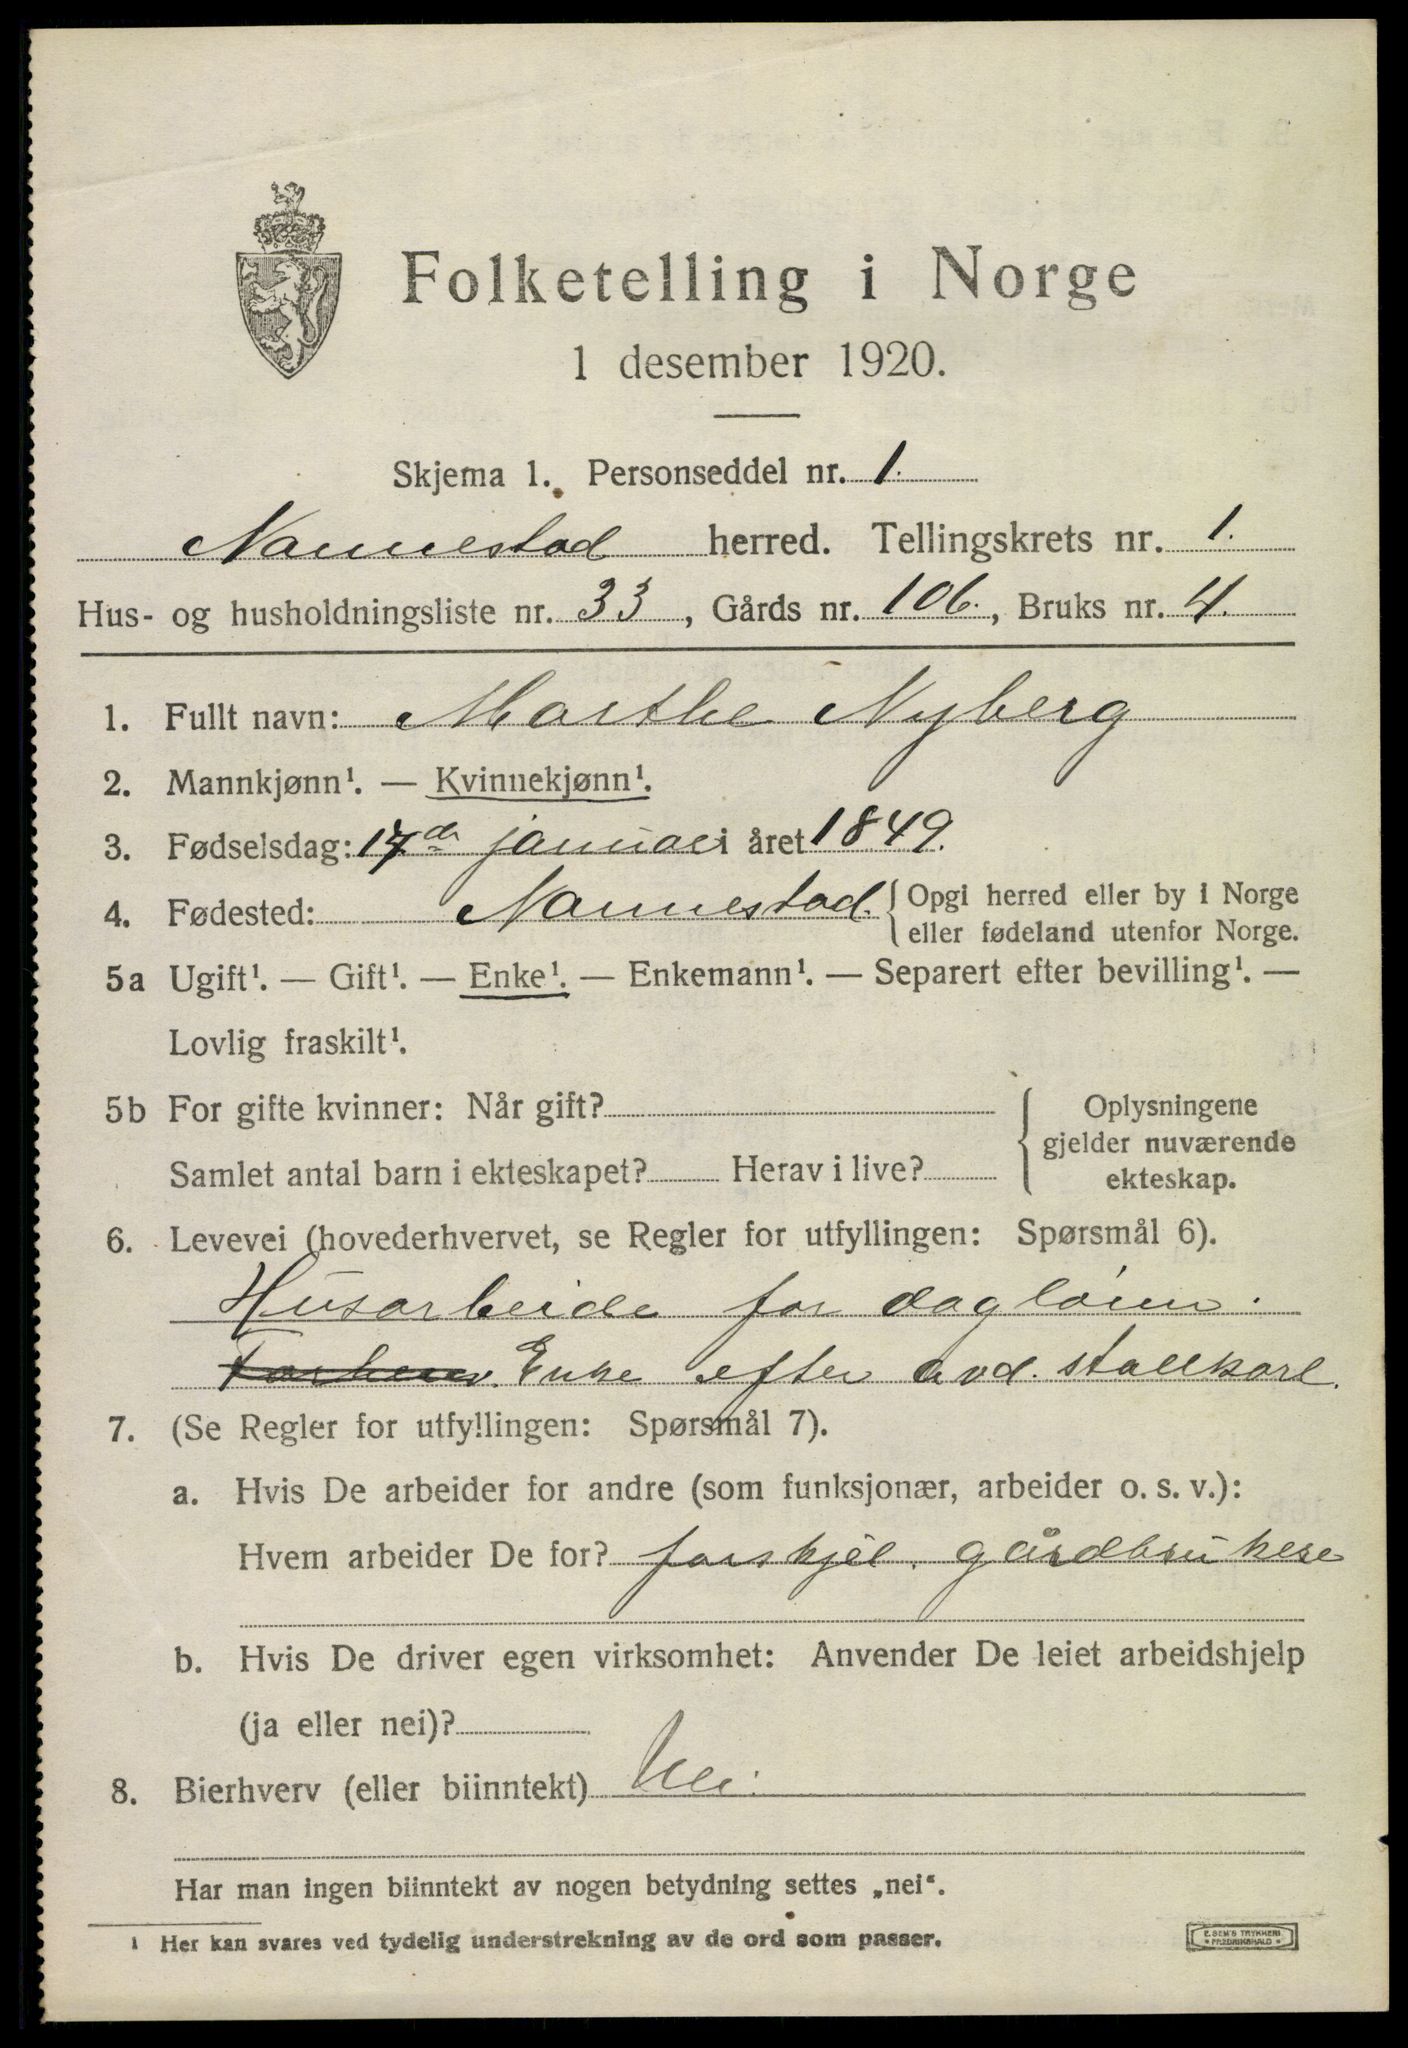 Folketelling i Norge
1 desember 1920.
Skjema 1. Personseddel nr. 1.
Nannestad herred. Tellingskrets nr. 1.
Hus- og husholdningsliste nr. 33, Gårds nr. 106., Bruks nr. 4.
1. Fullt navn: Marthe Nyberg
2. Mannkjønn¹. — Kvinnekjønn¹.
3. Fødselsdag: 17de januar i året 1849.
4. Fødested: Nannestad. { Opgi herred eller by i Norge
eller fødeland utenfor Norge.
5a Ugift¹. — Gift¹. — Enke¹. — Enkemann¹. — Separert efter bevilling¹. —
Lovlig fraskilt¹.
5b For gifte kvinner: Når gift? { Oplysningene
gjelder nuværende
Samlet antal barn i ekteskapet? Herav i live? ekteskap.
6. Levevei (hovederhvervet, se Regler for utfyllingen: Spørsmål 6).
Husarbeide for dagløin.
Enke efter avd. stallkarl.
7. (Se Regler for utfyllingen: Spørsmål 7).
a. Hvis De arbeider for andre (som funksjonær, arbeider o. s. v.):
Hvem arbeider De for? forskjel. gårdbrukere
b. Hvis De driver egen virksomhet: Anvender De leiet arbeidshjelp
(ja eller nei)?
8. Bierhverv (eller biinntekt) Nei.
Har man ingen biinntekt av nogen betydning settes „nei“.
¹ Her kan svares ved tydelig understrekning av de ord som passer.
E. SEM'S TRYKKERI
FREDRIKSHALD